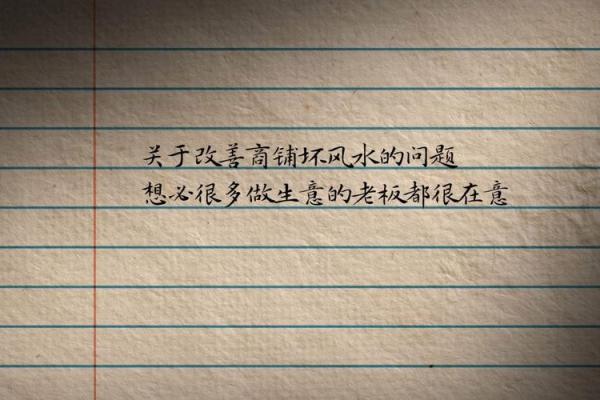 关于改善商铺坏风水的问题
想必很多做生意的老板都很在意